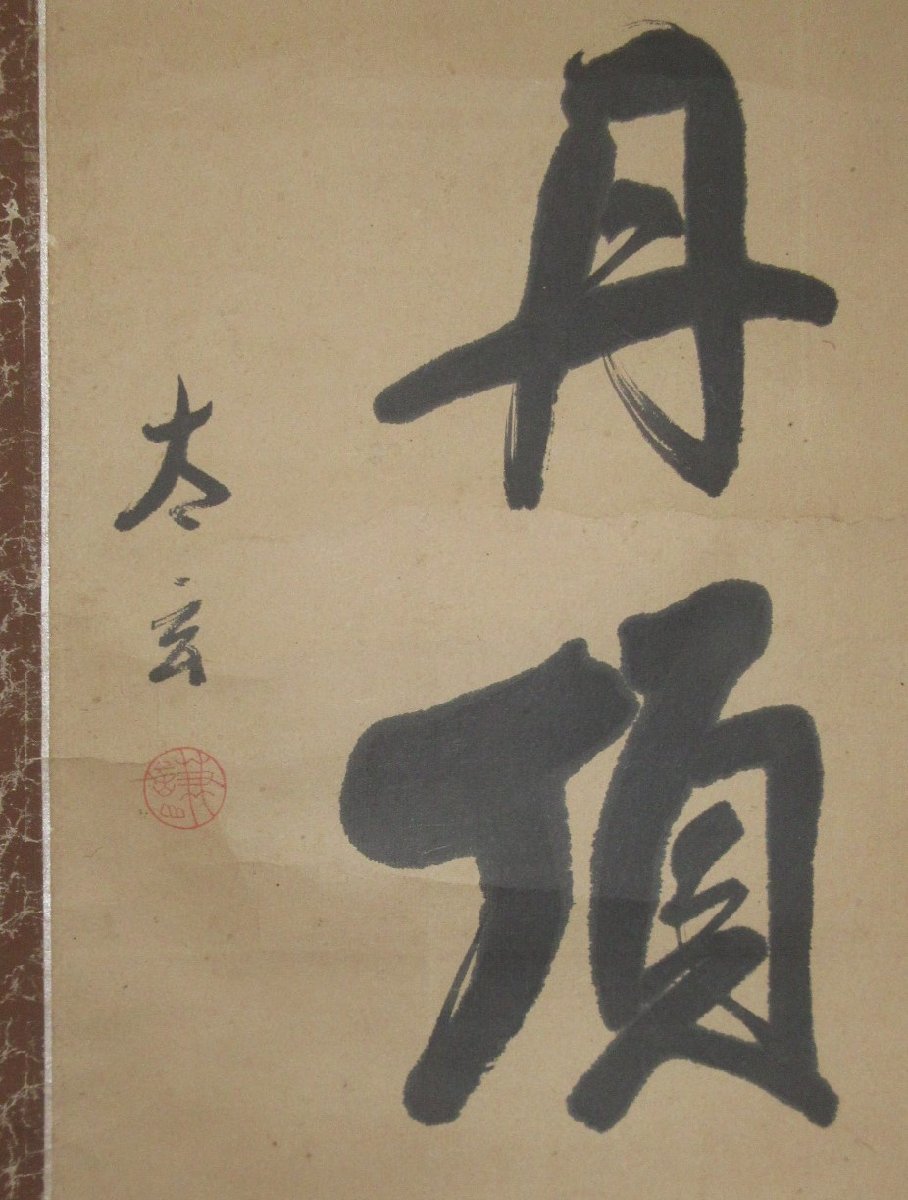 丹頂
太玄